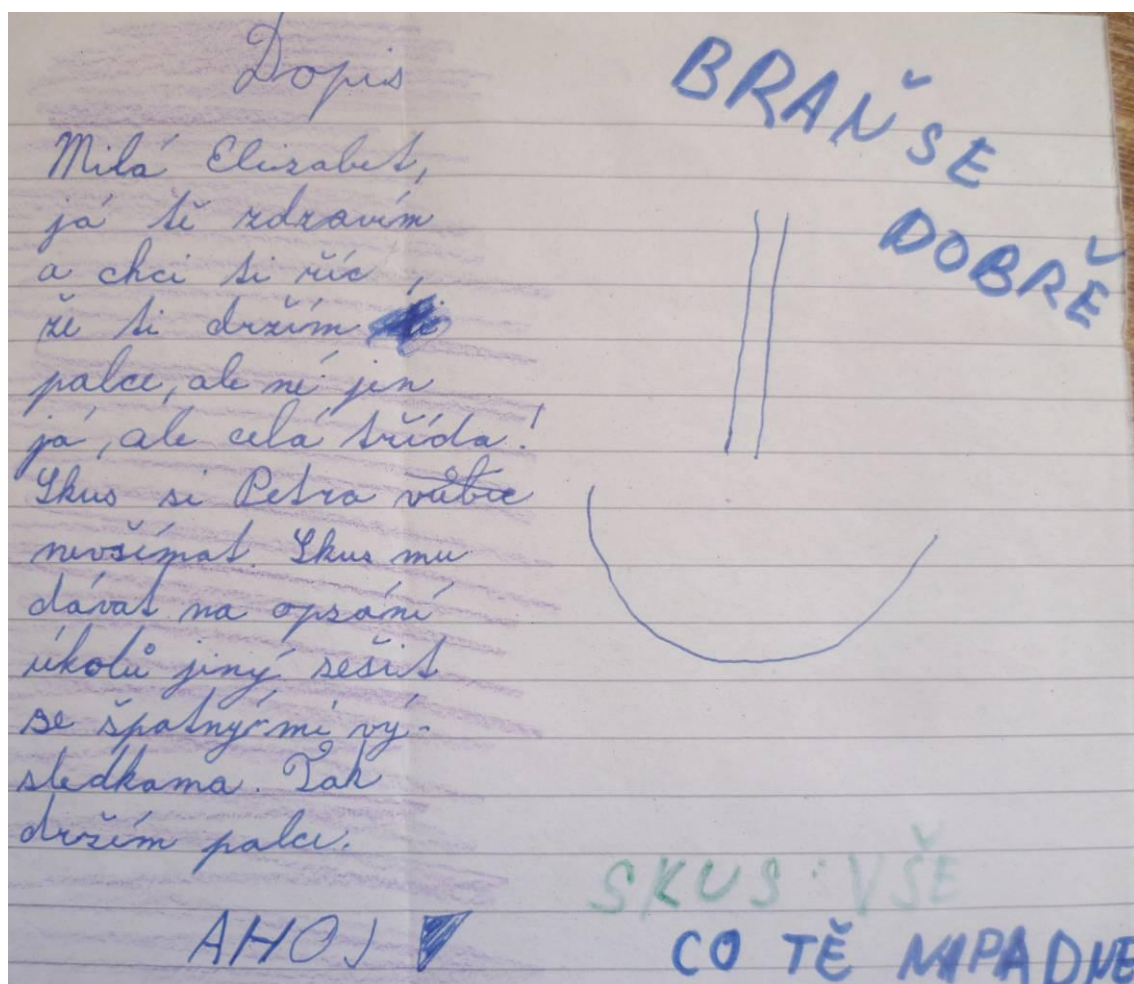 Dopis
Milá Elizabet,
já tě zdravím
a chci ti říc,
že ti držím
palce, ale né jen
já, ale celá třída!
Skus si Petra vůbec
nevšímat. Skus mu
dávat na opsání
úkolů jiný sešit
se špatnými vý-
sledkama. Tak
držím palce.
AHOJ
BRAŇ SE
DOBŘE
SKUS VŠE
CO TĚ NAPADNE